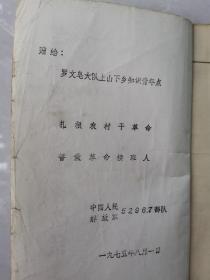 赠给：
罗文皂大队上山下乡知识青年点
扎根农村干革命
誓做革命接班人
中国人民
解放军
52967部队
一九七五年八月一日